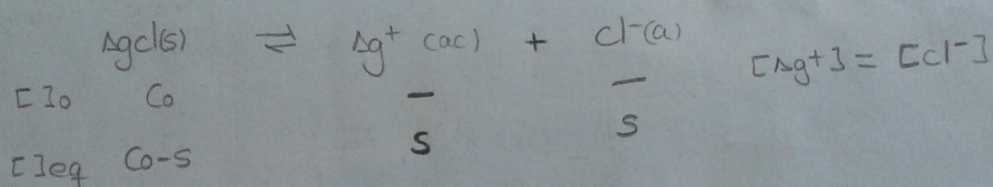 Agcl(s) ⇌ Ag⁺ (ac) + cl⁻(a) [Ag⁺] = [cl⁻]
[ ]o Co — —
[ ]eq Co-s s s